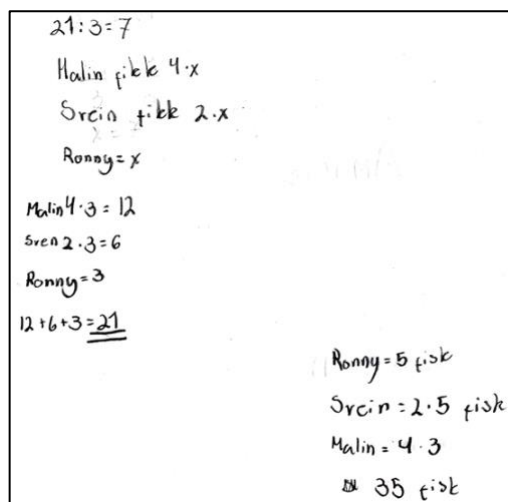 21:3=7
Malin fikk 4·x
Svein fikk 2·x
Ronny=x
Malin 4·3=12
Sven 2·3=6
Ronny=3
12+6+3=21
Ronny=5 fisk
Svein=2·5 fisk
Malin=4·3
35 fisk